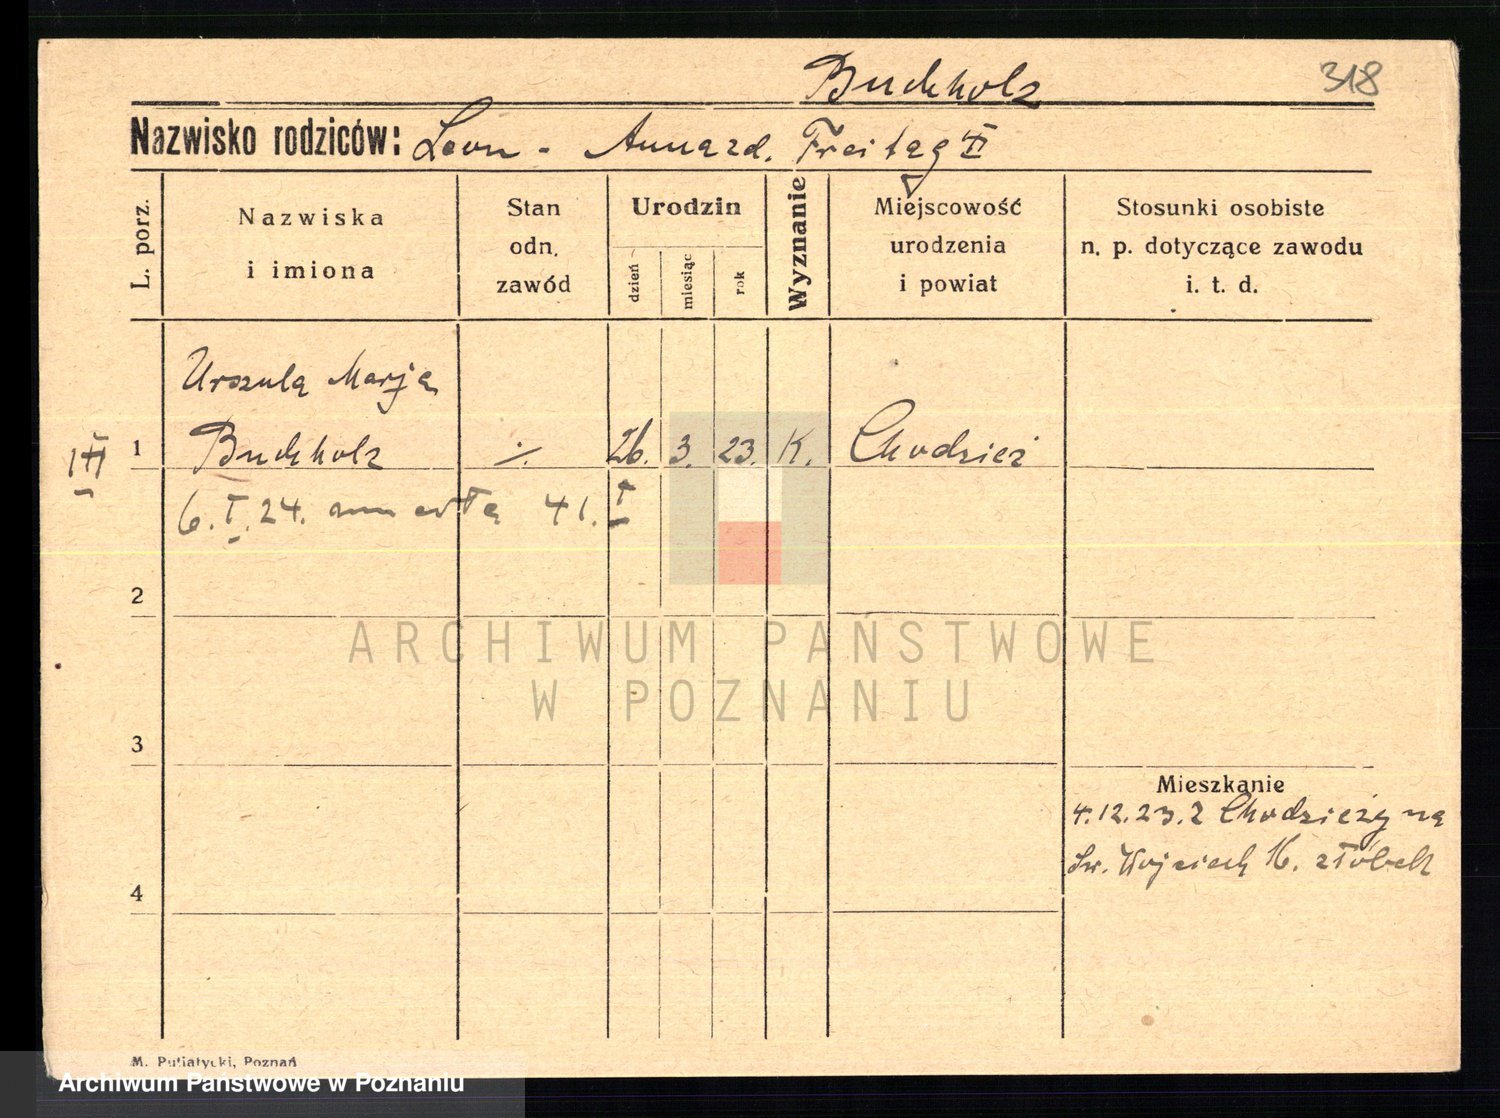 Buchholz
318
Nazwisko rodziców: Leon - Anna zd. Freitag
L. porz.
Nazwiska
i imiona
Stan
odn.
zawód
Urodzin
dzień
miesiąc
rok
Wyznanie
Miejscowość
urodzenia
i powiat
Stosunki osobiste
n. p. dotyczące zawodu
i. t. d.
Urszula Marja
1 Buchholz ·/. 26. 3. 23. K. Chodzież
6. I. 24. umarła 41. I
2
ARCHIWUM PAŃSTWOWE
W POZNANIU
3
Mieszkanie
4.12.23. z Chodzieży na
św. Wojciech 16. żłóbek
4
M. Putiatycki, Poznań
Archiwum Państwowe w Poznaniu